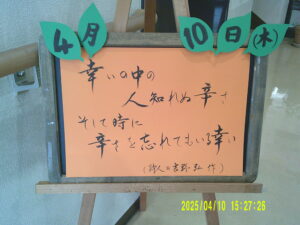 4月 10日(木)
幸いの中の
人知れぬ辛さ
そして時に
辛さを忘れてもいる幸い
(詩人の吉野弘 作)
2025/04/10 15:27:26